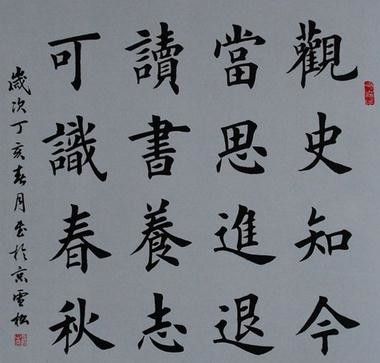 觀史知今
當思進退
讀書養志
可識春秋
歲次丁亥春月書於京雪松